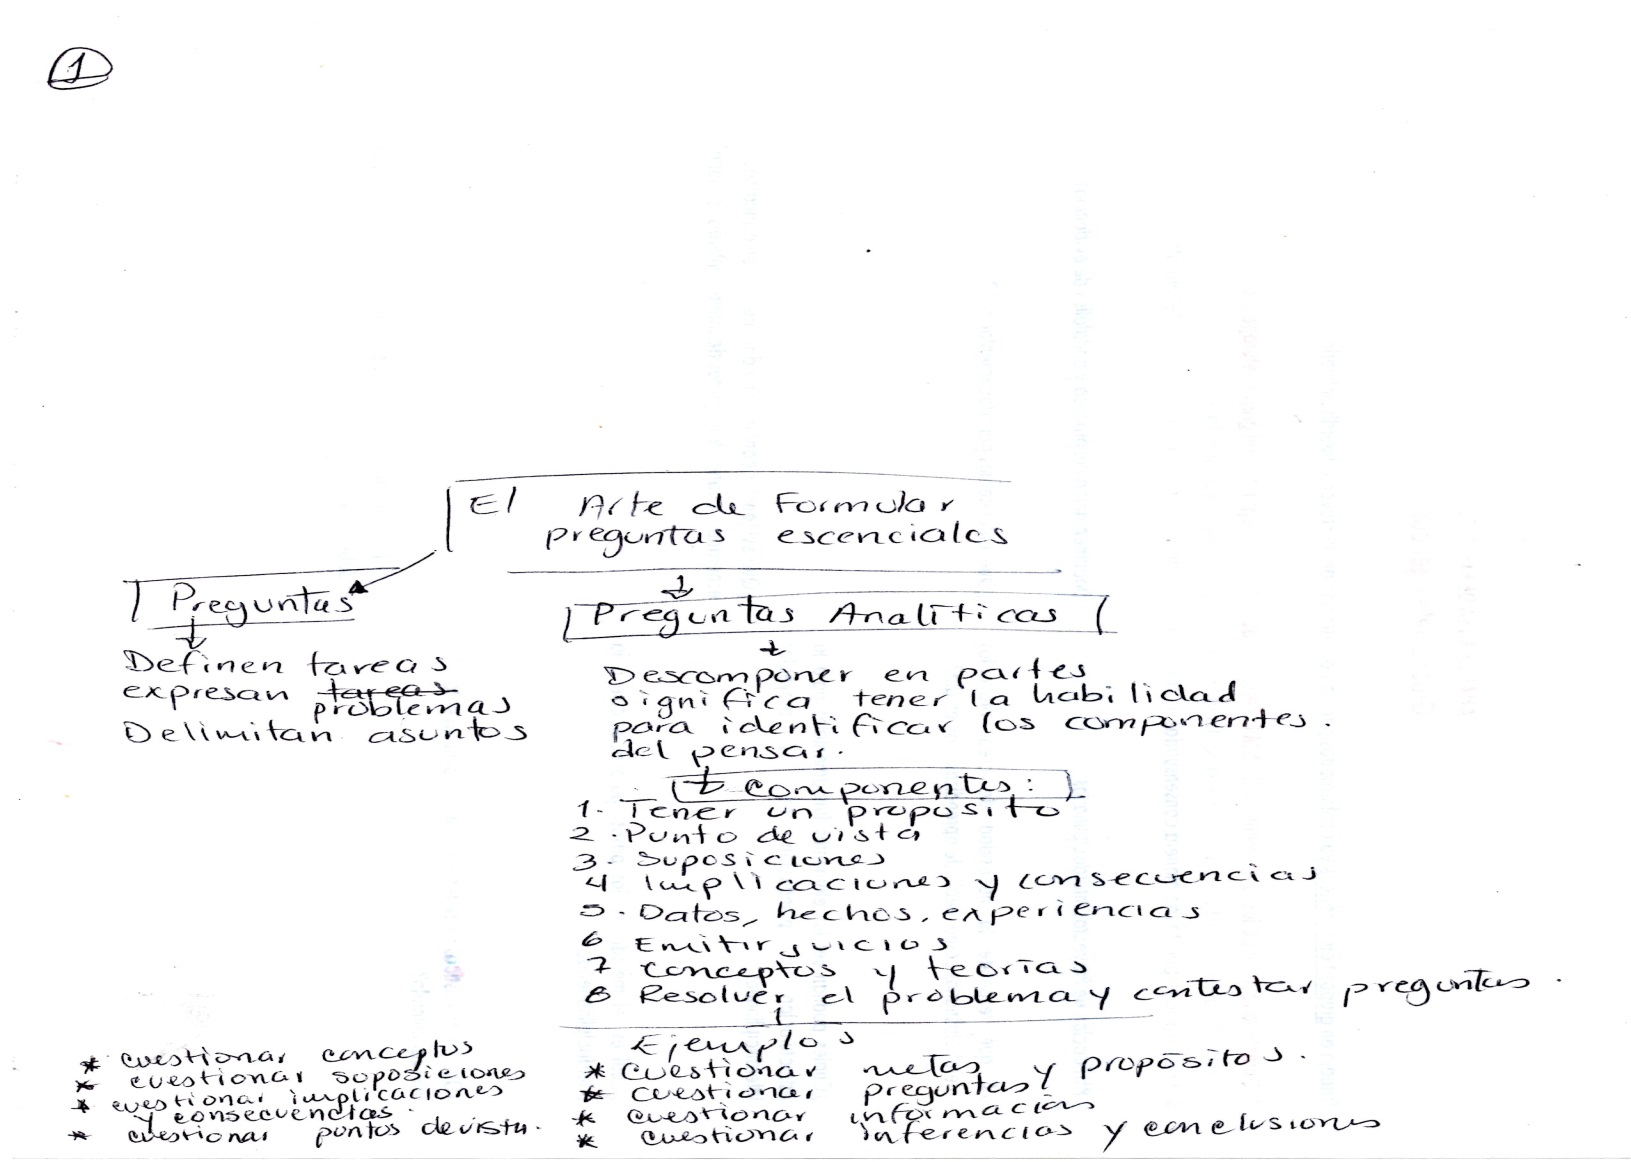 1
El Arte de Formular
preguntas escenciales
Preguntas
Definen tareas
expresan tareas
problemas
Delimitan asuntos
Preguntas Analíticas
Descomponer en partes
significa tener la habilidad
para identificar los componentes.
del pensar.
Componentes:
1. Tener un proposito
2. Punto de vista
3. Suposiciones
4 Implicaciones y consecuencias
5. Datos, hechos, experiencias
6 Emitir juicios
7 conceptos y teorías
8 Resolver el problema y contestar preguntas.
Ejemplos
* cuestionar metas y propósitos.
* cuestionar preguntas
* cuestionar información
* cuestionar inferencias y conclusiones
* cuestionar conceptos
* cuestionar suposiciones
* cuestionar implicaciones
y consecuencias.
* cuestionar puntos de vista.